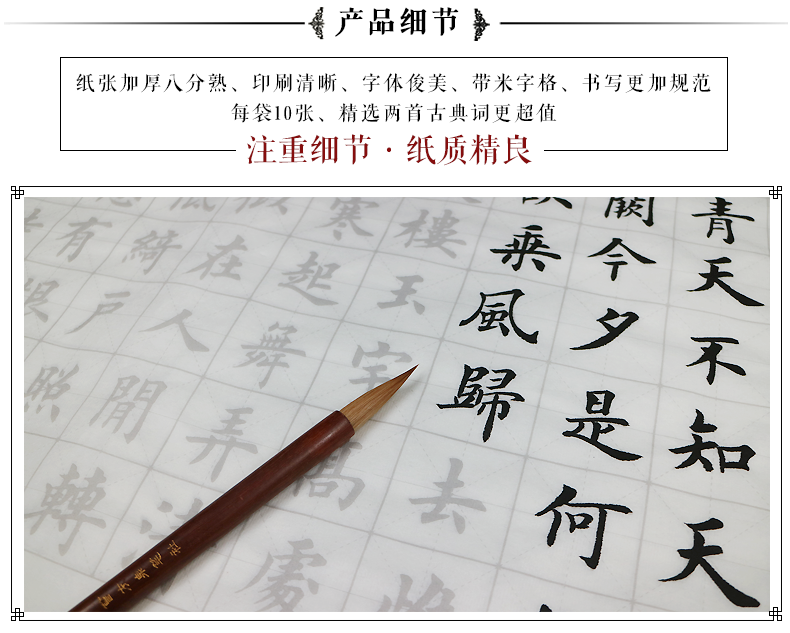 产品细节
纸张加厚八分熟、印刷清晰、字体俊美、带米字格、书写更加规范
每袋10张、精选两首古典词更超值
注重细节·纸质精良
青天不知天
闕今夕是何
欲乘風歸去
樓玉宇高處
寒起舞弄清
似在人間轉
低綺戶照
有恨